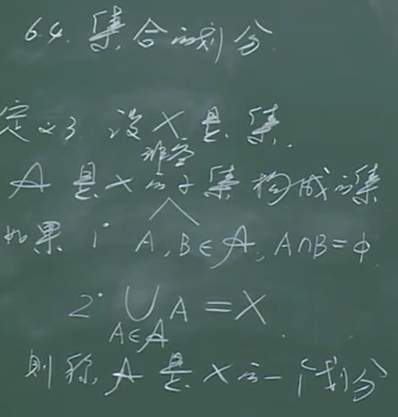 6.4. 集合的划分
定义3. 设X是集.
𝒜是X的非空子集构成的集
如果 1° A,B∈𝒜, A∩B=φ
2° ∪A=X
A∈𝒜
则称𝒜是X的一个划分